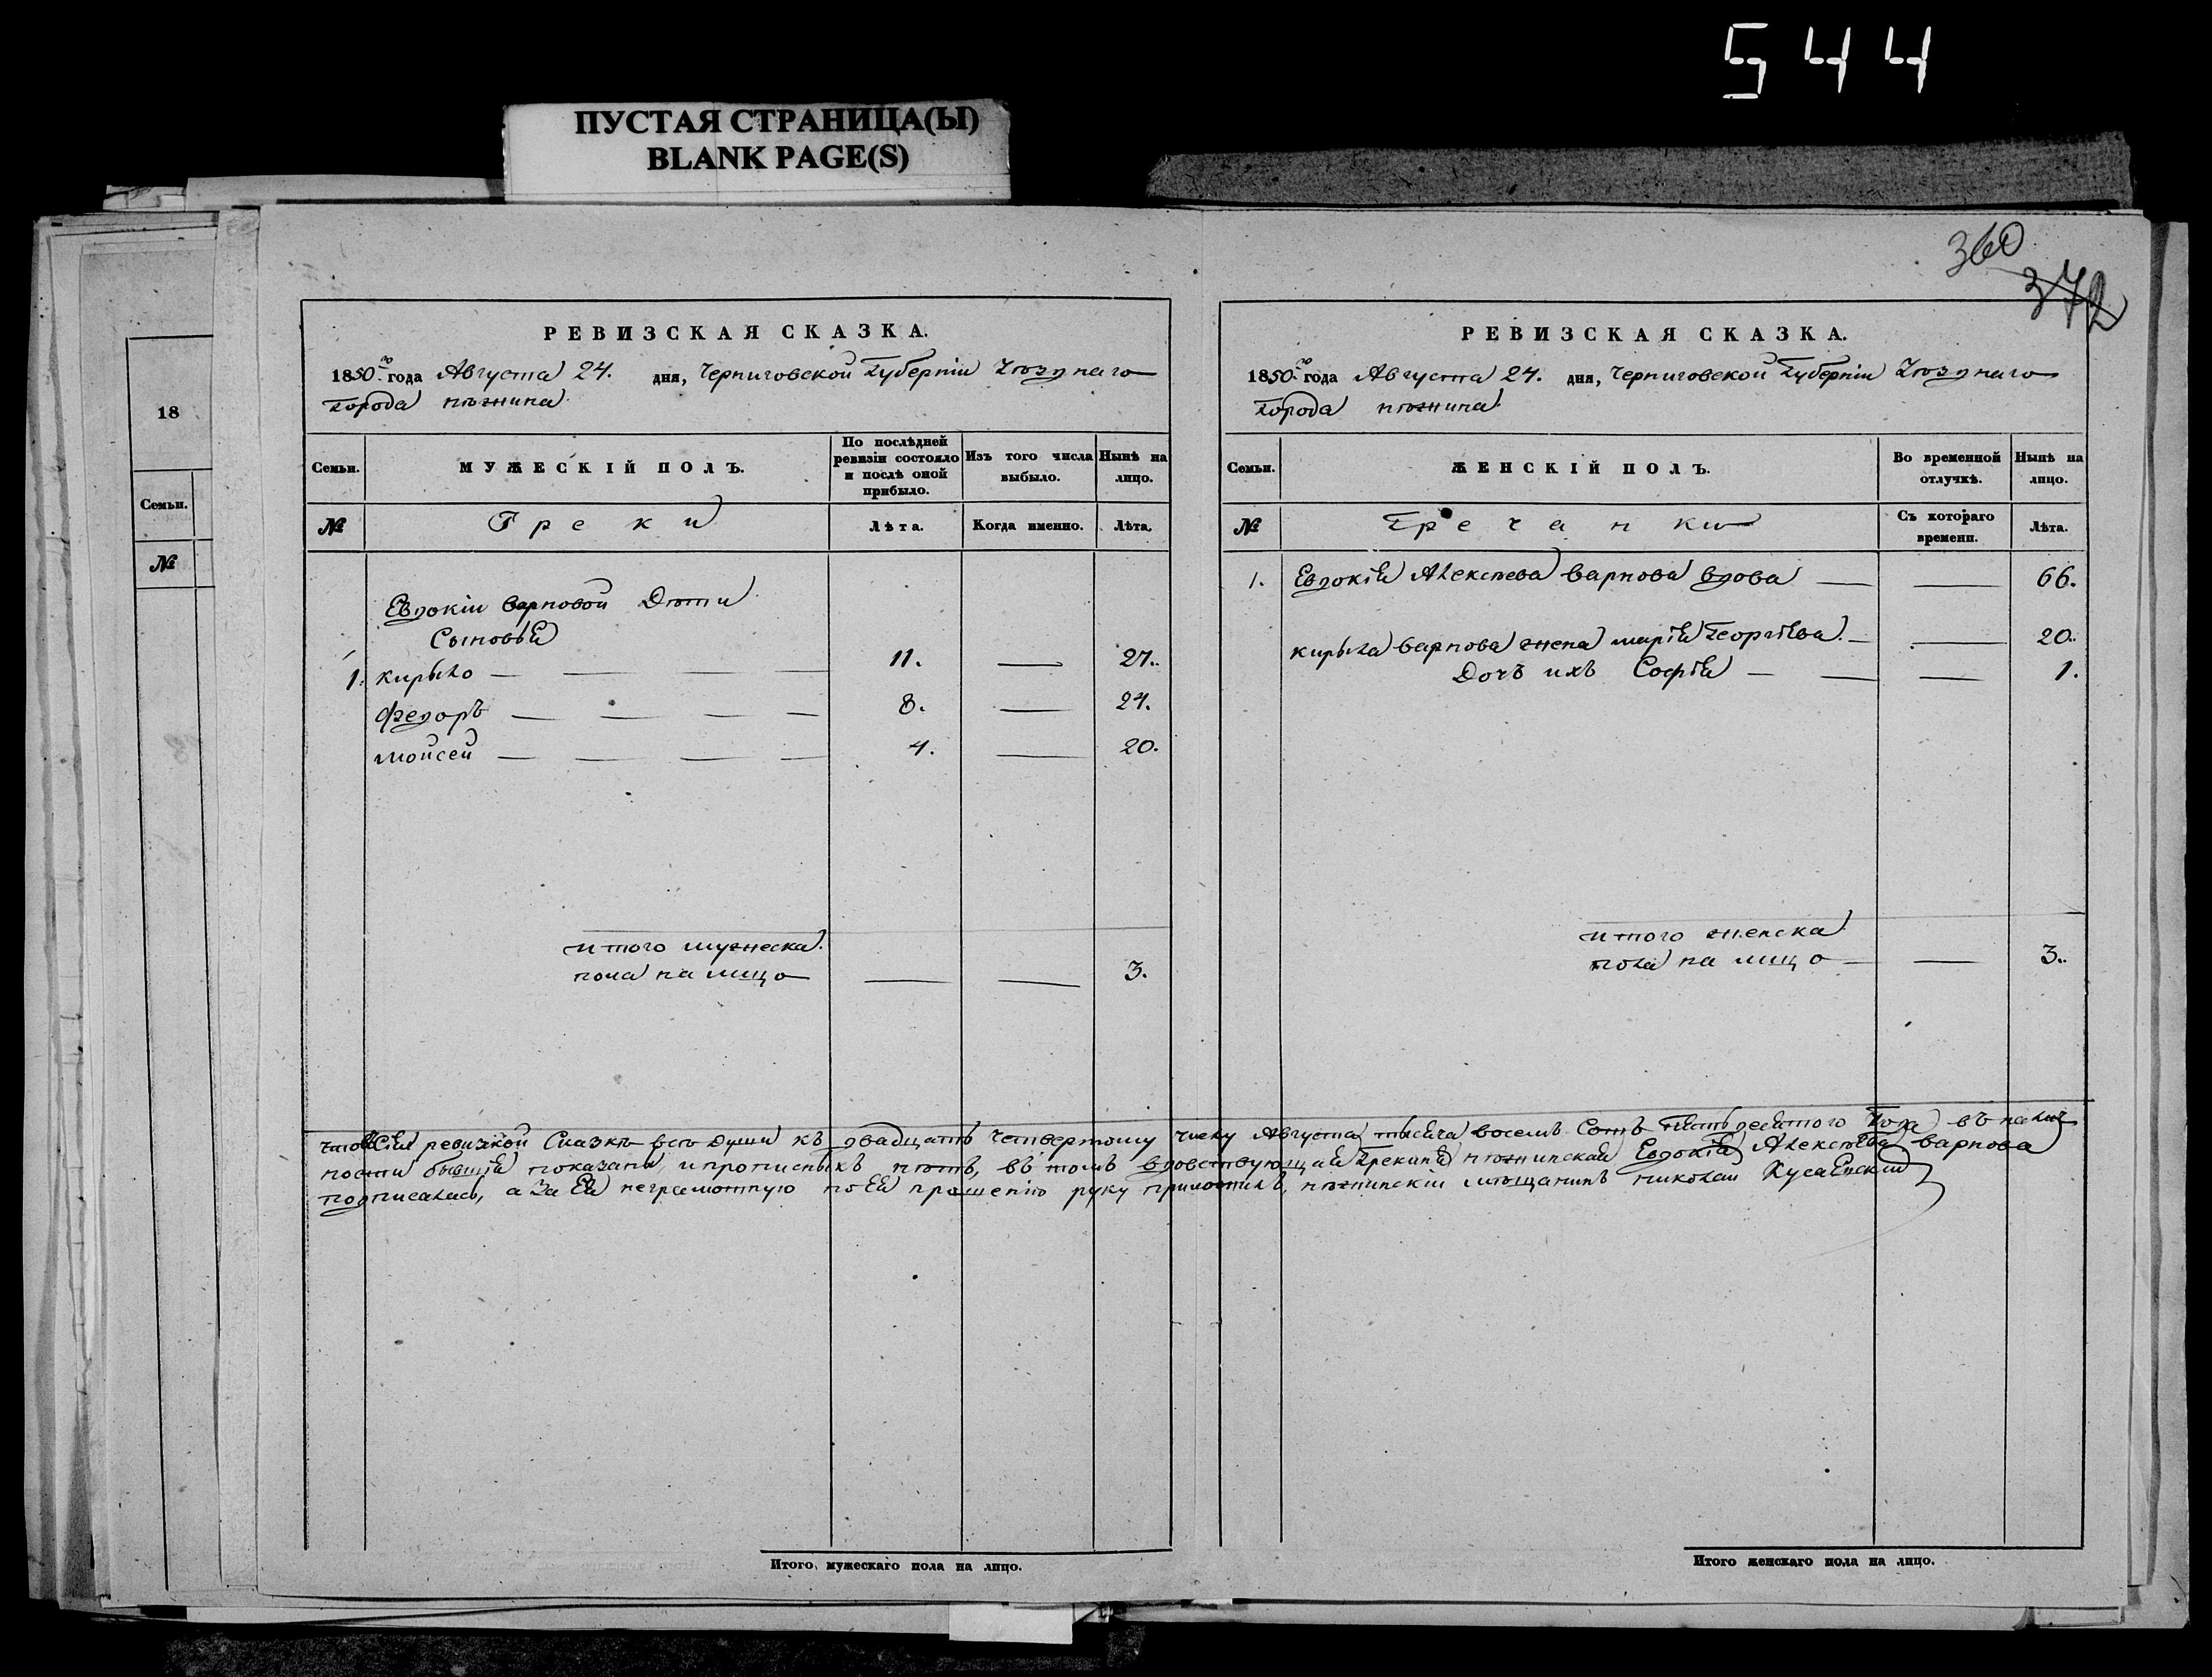 544
ПУСТАЯ СТРАНИЦА(Ы)
BLANK PAGE(S)
360
372
18
Семьи.
№
РЕВИЗСКАЯ СКАЗКА.
1850го года Августа 24. дня, Черниговской Губерніи Уѣзднаго
города нѣжина
Семьи.
МУЖЕСКІЙ ПОЛЪ.
По послѣдней ревизіи состояло и послѣ оной прибыло.
Изъ того числа выбыло.
Нынѣ на лицо.
№
Греки
Лѣта.
Когда именно.
Лѣта.
Евдокіи варновой Дѣти
Сыновья
1. кирыло 11. 27.
федоръ 8. 24.
мойсей 4. 20.
итого мужеска
пола на лицо 3.
РЕВИЗСКАЯ СКАЗКА.
1850го года Августа 24. дня, Черниговской Губерніи Уѣзднаго
города нѣжина
Семьи.
ЖЕНСКІЙ ПОЛЪ.
Во временной отлучкѣ.
Нынѣ на лицо.
№
Гречанки
Съ котораго времени.
Лѣта.
1. Евдокія Алексѣева варнова вдова 66.
кирыла варнова жена марія Георгіева 20.
Дочъ ихъ Софія 1.
итого женска
пола на лицо 3.
что въ Сей ревизкой Сказкѣ всѣ души къ двадцать четвертому числу Августа тысяча восемъ Сотъ пятьдесятого Года въ налич
ности бывшія показаны, и прописныхъ нѣтъ, въ томъ вдовствующая Грекиня нѣжинская Евдокія Алексѣева варнова
подписалась, а За Ея неграмотную по Ея прошенію руку приложилъ, нѣжинскій мѣщанинъ николай
Итого мужескаго пола на лицо.
Итого женскаго пола на лицо.